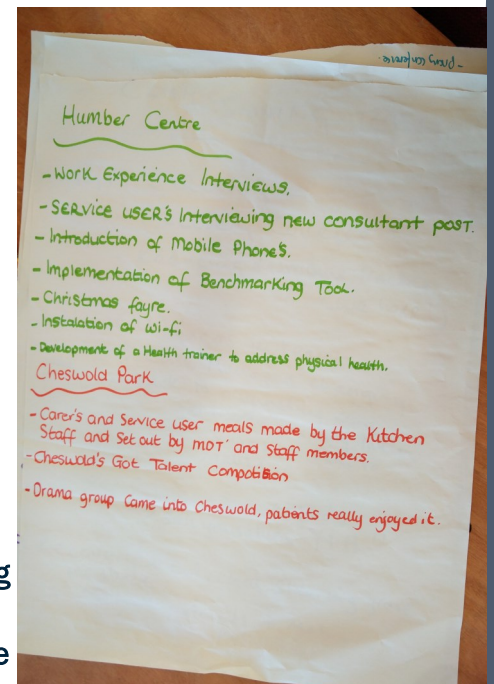 Humber Centre
- Work Experience Interviews.
- Service user's Interviewing new consultant post.
- Introduction of Mobile Phone's.
- Implementation of Benchmarking Tool.
- Christmas fayre.
- Instalation of wi-fi
- Development of a Health trainer to address physical health.
Cheswold Park
- Carer's and Service user meals made by the Kitchen
Staff and Set out by MDT' and Staff members.
- Cheswold's Got Talent Compotision
- Drama group Came into Cheswold, patients really enjoyed it.
g
e